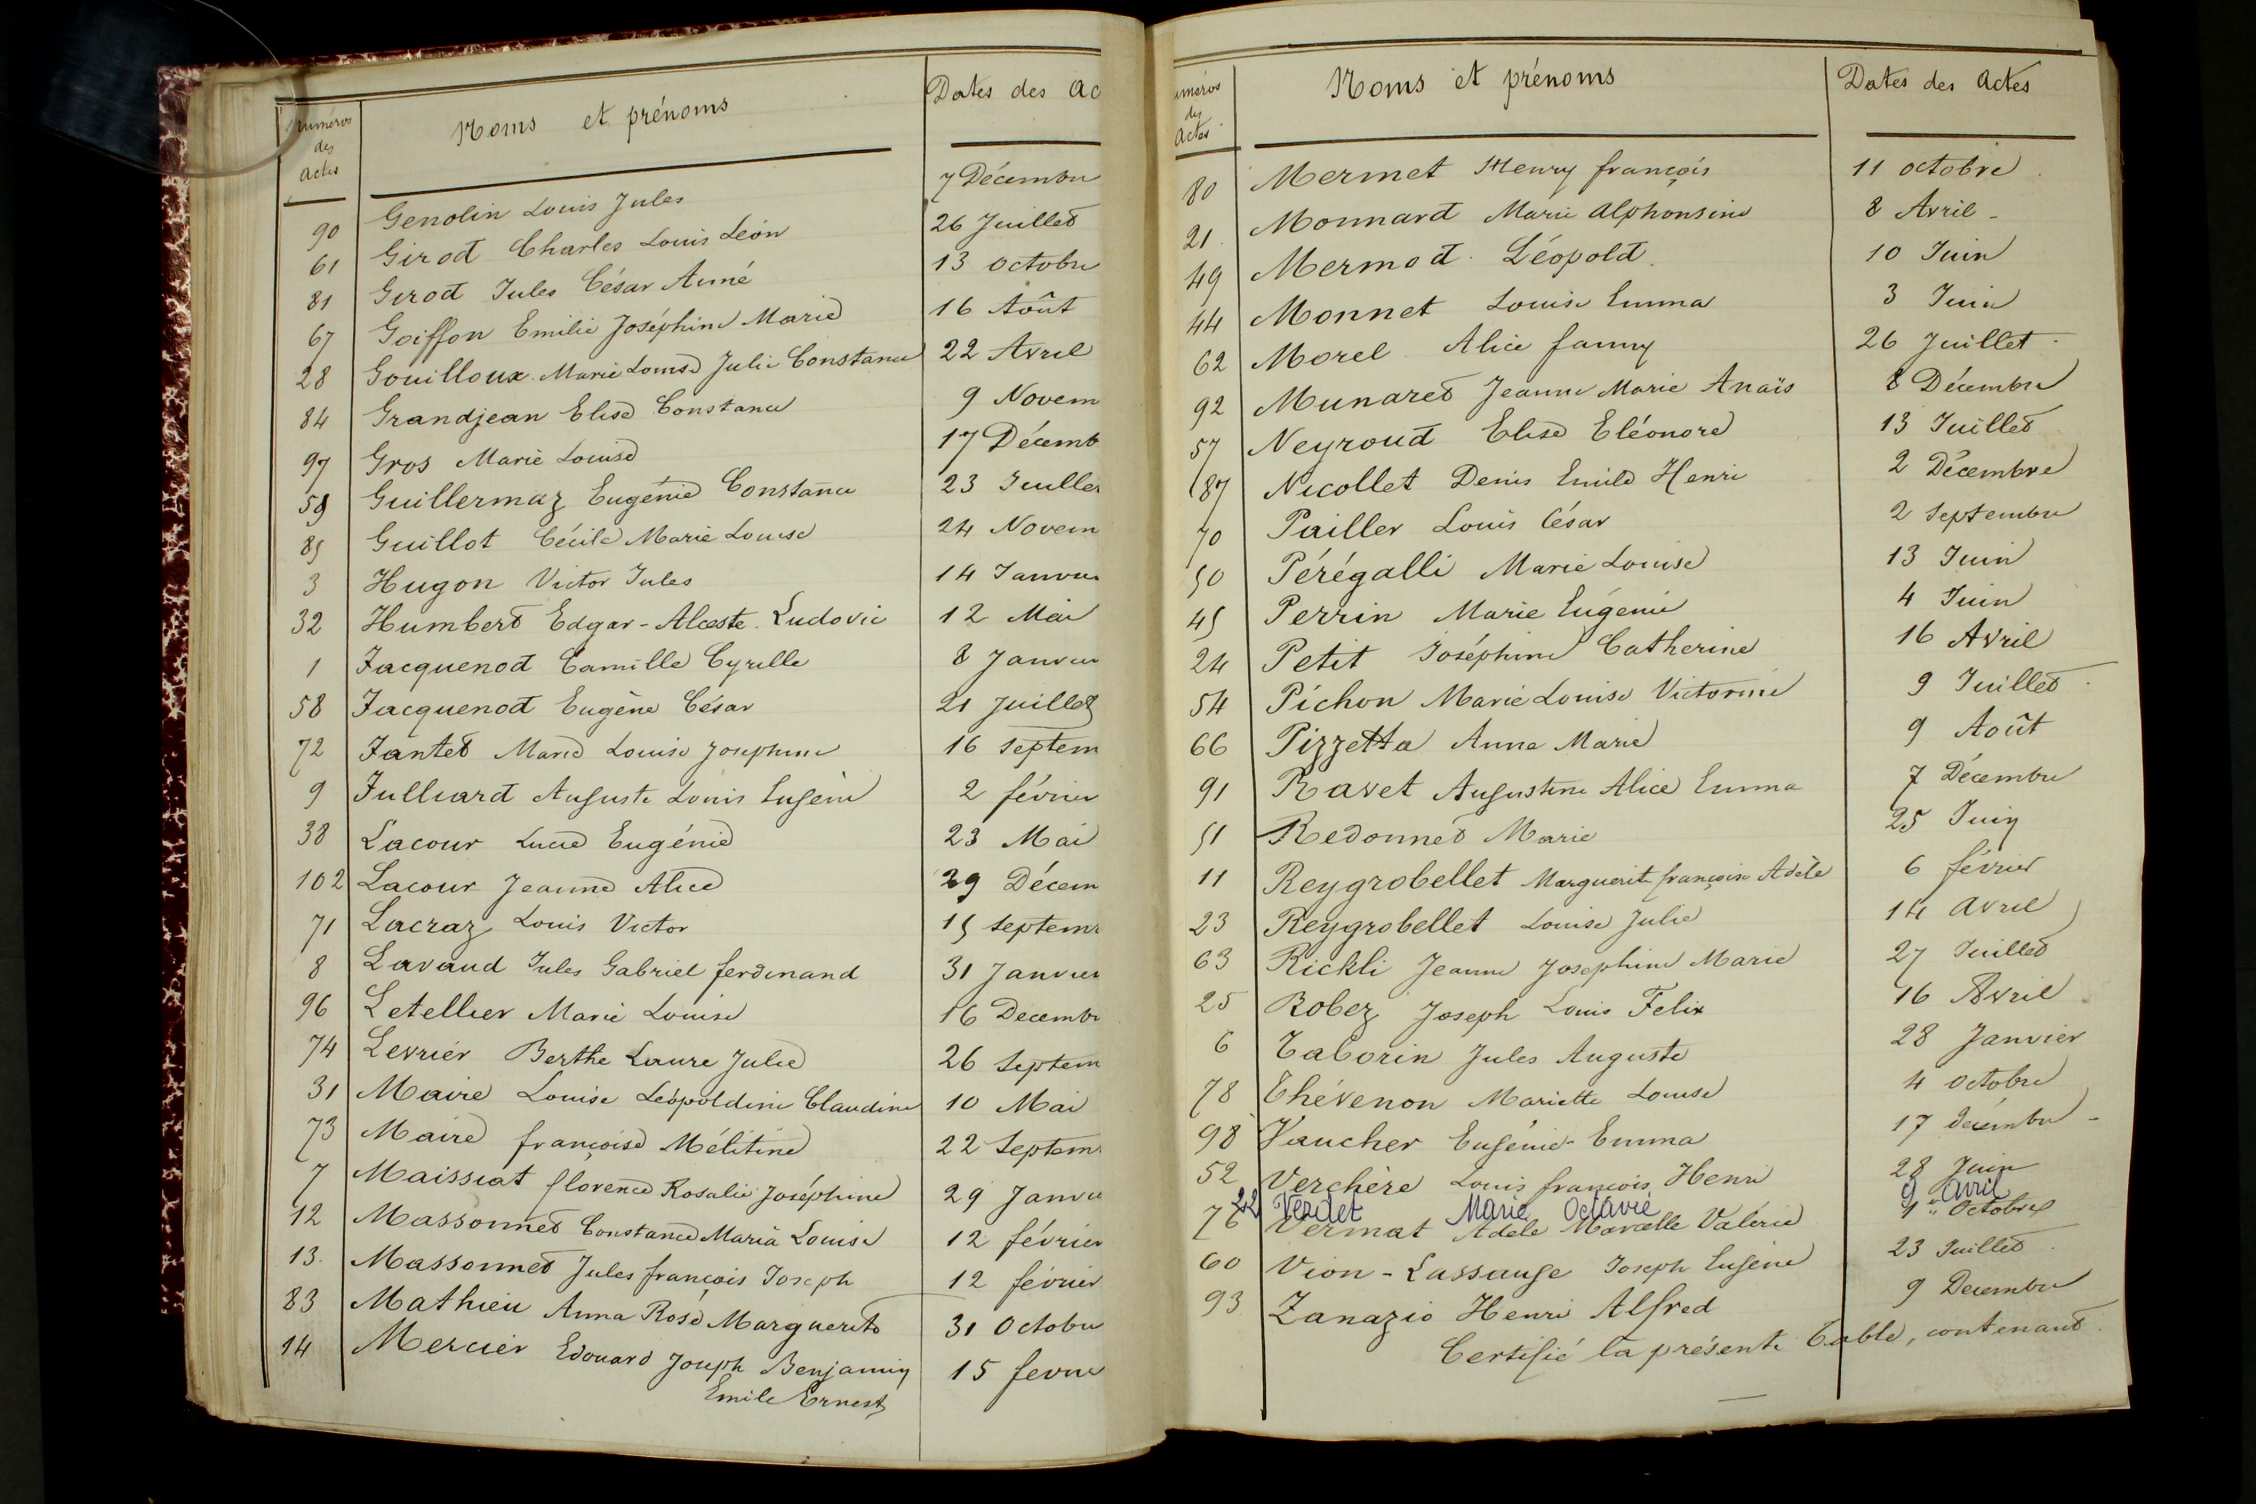 Numéros des Actes Noms et prénoms Dates des Ac
90 Genolin Louis Jules 7 Décembre
61 Girod Charles Louis Léon 26 Juillet
81 Girod Jules César Aimé 13 octobre
67 Goiffon Emilie Joséphine Marie 16 Août
28 Gouilloux Marie Louise Julie Constance 22 Avril
84 Grandjean Elise Constance 9 Novem
97 Gros Marie Louise 17 Décemb
59 Guillermaz Eugénie Constance 23 Juillet
85 Guillot Cécile Marie Louise 24 Novem
3 Hugon Victor Jules 14 Janvier
32 Humbert Edgar-Alceste Ludovic 12 Mai
1 Jacquenod Camille Cyrille 8 Janvier
58 Jacquenod Eugène César 21 Juillet
72 Jantet Marie Louise Josephine 16 Septem
9 Julliard Auguste Louis Eugène 2 février
38 Lacour Lucie Eugénie 23 Mai
102 Lacour Jeanne Alice 29 Décem
71 Lacraz Louis Victor 15 Septem
8 Lavaud Jules Gabriel ferdinand 31 Janvier
96 Letellier Marie Louise 16 Decembr
74 Levrier Berthe Laure Julie 26 Septem
31 Maire Louise Léopoldine Claudine 10 Mai
73 Maire françoise Mélitine 22 Septem
7 Maissiat florence Rosalie Joséphine 29 Janvie
12 Massonnet Constance Maria Louise 12 février
13. Massonnet Jules françois Joseph 12 février
83 Mathieu Anna Rose Marguerite 31 Octobre
14 Mercier Edouard Joseph Benjamin 15 fevrie
Emile Ernest
uméros des Actes Noms et prénoms Dates des Actes
80 Mermet Henry françois 11 octobre
21. Monnard Marie Alphonsine 8 Avril
49 Mermod Léopold 10 Juin
44 Monnet Louise Emma 3 Juin
62 Morel Alice fanny 26 Juillet
92 Munaret Jeanne Marie Anaïs 8 Décembre
57 Neyroud Elise Eléonore 13 Juillet
87 Nicollet Denis Emile Henri 2 Décembre
70 Pailler Louis César 2 Septembre
50 Pérégalli Marie Louise 13 Juin
45 Perrin Marie Eugénie 4 Juin
24 Petit Joséphine Catherine 16 Avril
54 Pichon Marie Louise Victorine 9 Juillet
66 Pizzetta Anna Marie 9 Août
91 Ravet Augustine Alice Emma 7 Décembre
51 Redonnet Marie 25 Juin
11 Reygrobellet Marguerite françoise Adèle 6 février
23 Reygrobellet Louise Julie 14 avril
63 Rickli Jeanne Josephine Marie 27 Juillet
25 Robez Joseph Louis Felix 16 Avril
6 Taborin Jules Auguste 28 Janvier
78 Thévenon Mariette Louise 4 octobre
98 Vaucher Eugénie Emma 17 décembre
52 Verchère Louis françois Henri 28 Juin
22 Verdet Marie Octavie 9 avril
76 Vermat Adèle Marcelle Valérie 1er Octobre
60 Vion-Lassauge Joseph Eugène 23 Juillet
93 Zanazio Henri Alfred 9 Decembre
Certifié la présente Table, contenant